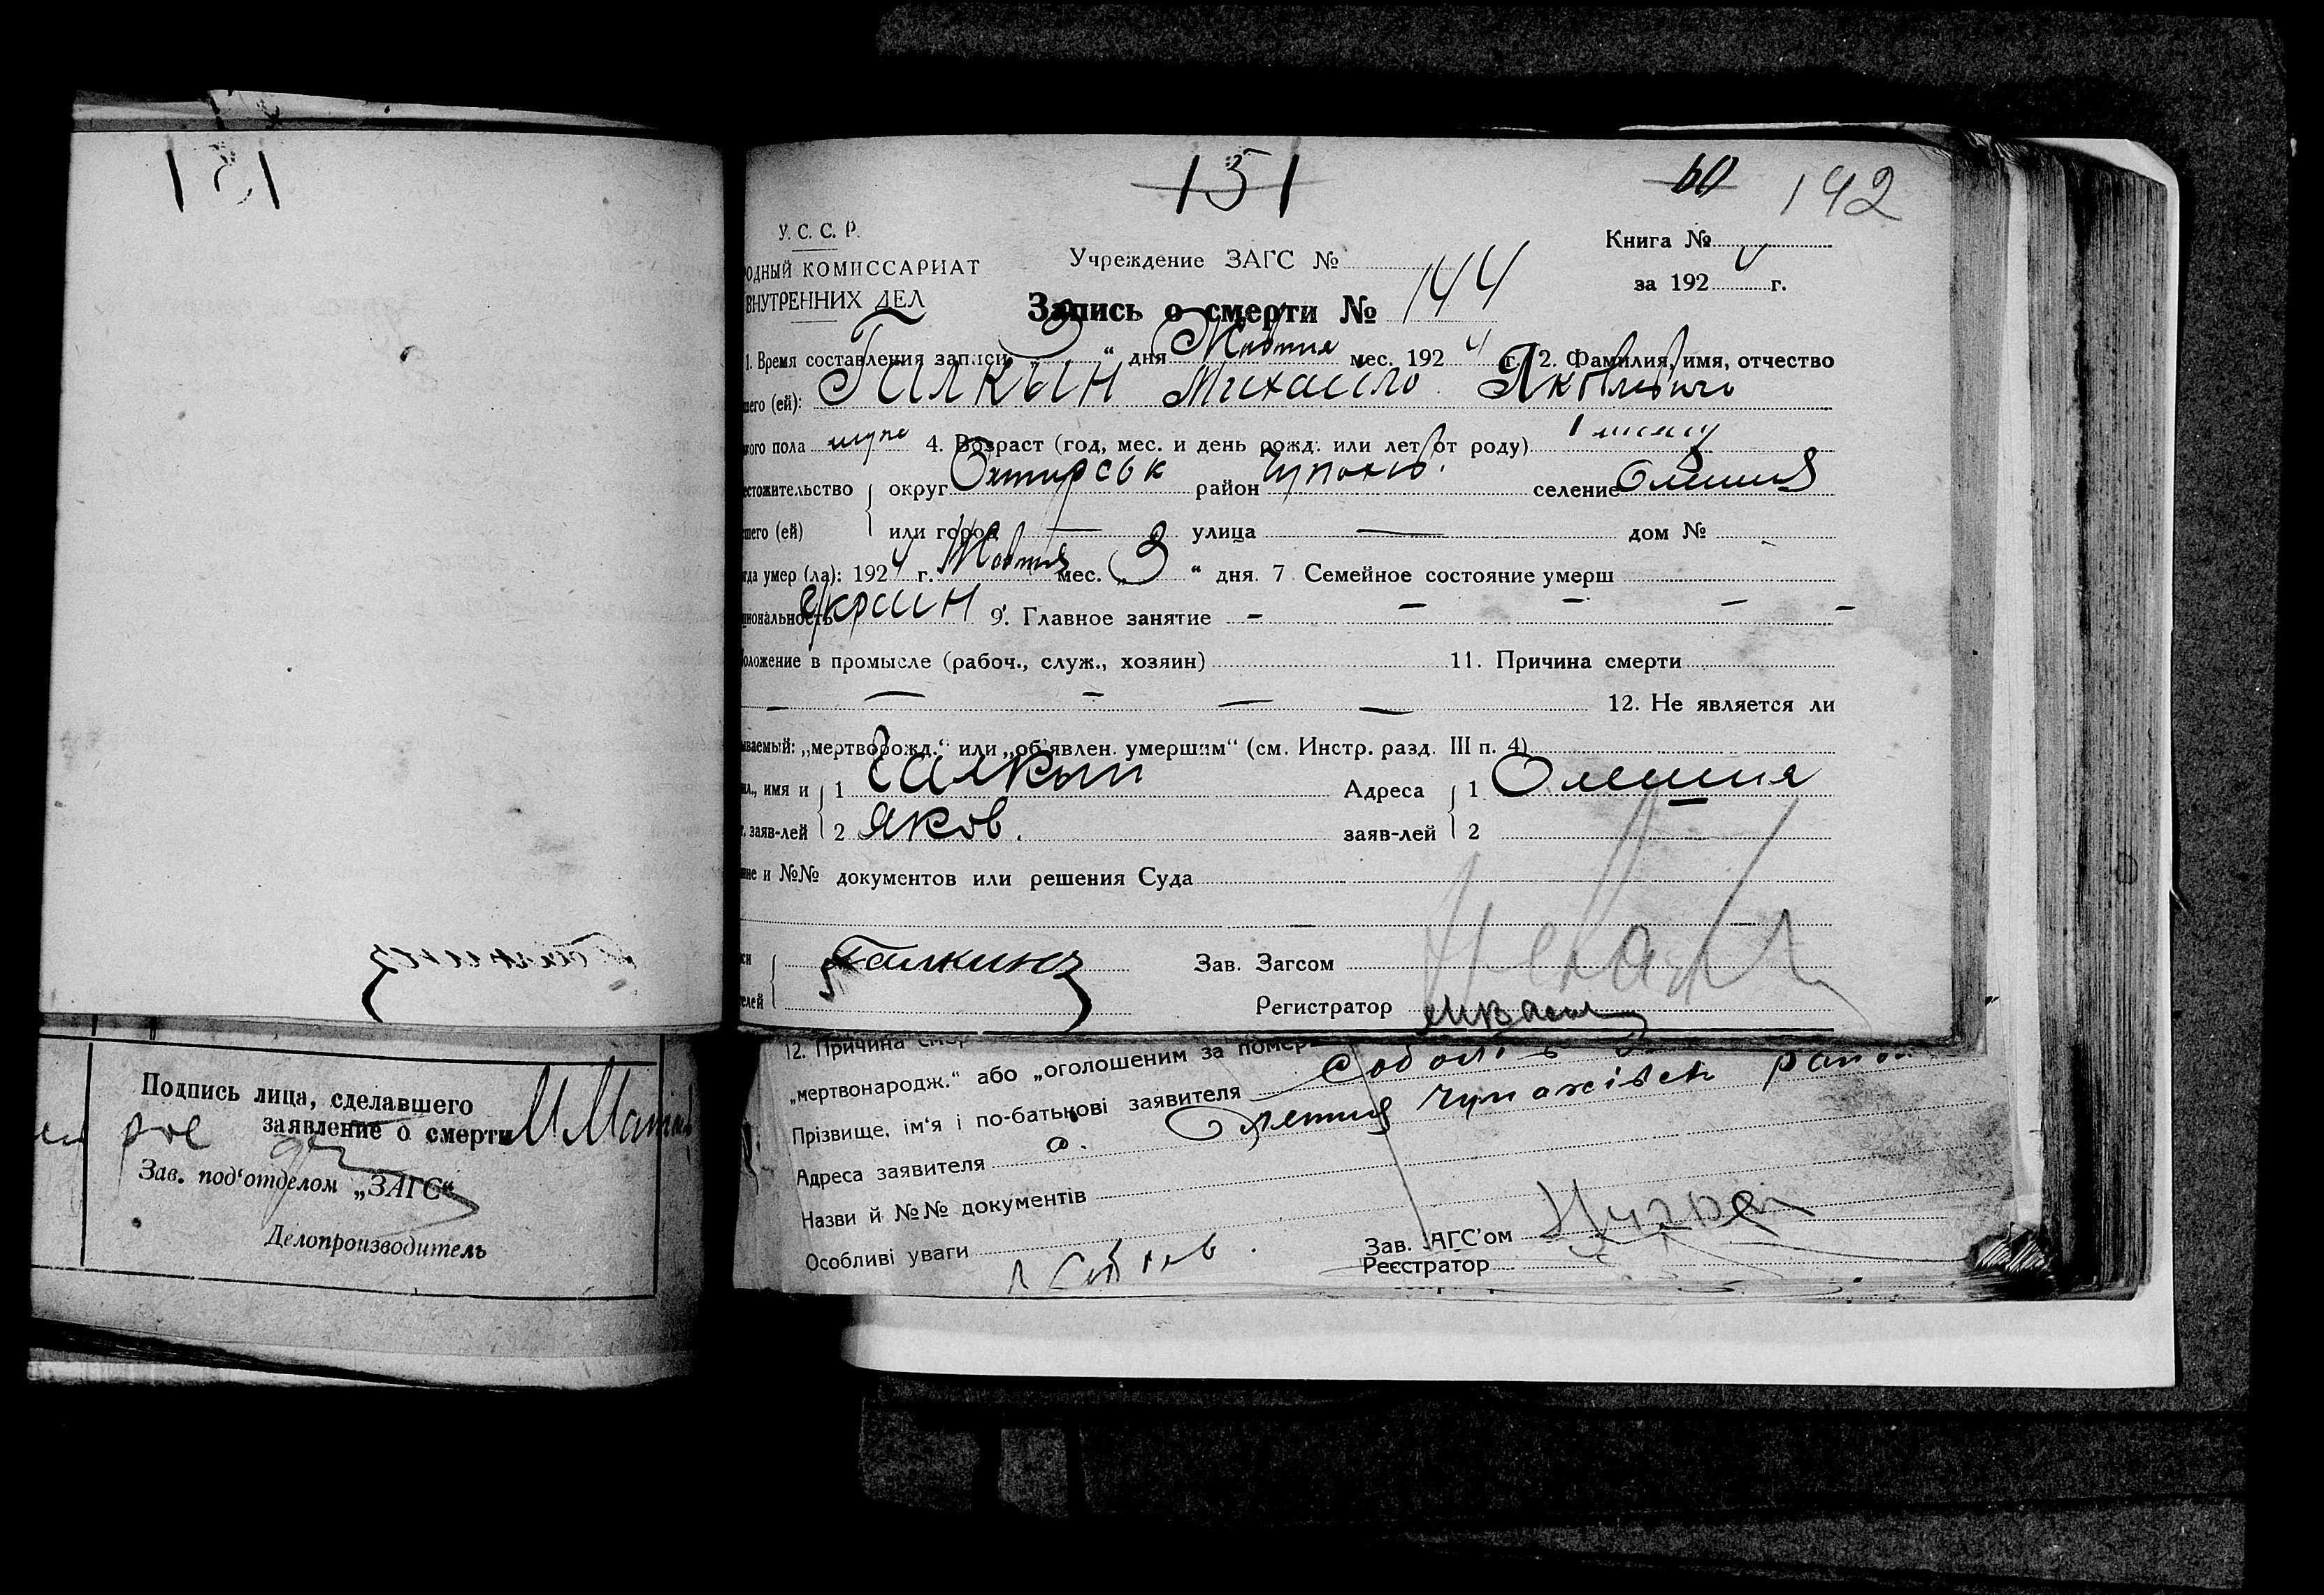 151
60 192
У. С. С. Р.
Книга №
ОДНЫЙ КОМИССАРИАТ
Учреждение ЗАГС №
ВНУТРЕННИХ ДЕЛ
за 1924 г.
Запись о смерти № 144
1. Время составления записи „3“ дня Жовтня мес. 1924 г. 2. Фамилия, имя, отчество
шего (ей): Галкын Михаило Якович
кого пола 4. Возраст (год, мес. и день рожд. или лет от роду) 1
естожительство округ Охтирськ район Чупахів. селение Олешня
шего (ей) или город — улица — дом № -
гда умер (ла): 1924 г. Жовтня мес. „3“ дня. 7 Семейное состояние умерш
циональность Украин 9. Главное занятие - - - - -
оложение в промысле (рабоч., служ., хозяин) 11. Причина смерти
- - - - - 12. Не является ли
ываемый: „мертворожд.“ или „об'явлен. умершим“ (см. Инстр. разд. III п. 4)
ил., имя и 1 Галкын Адреса 1 Олешня
. заяв-лей 2 Яков. заяв-лей 2
ние и №№ документов или решения Суда
си Галкинъ Зав. Загсом
елей Регистратор
12. Причина смер
„мертвонародж.“ або „оголошеним за помер
Прізвище, ім'я і по-батькові заявителя
Адреса заявителя с. Олешня Чупахівск район
Назви й №№ документів
Особливі уваги
Зав. ЗАГС'ом
Реєстратор
Подпись лица, сделавшего
заявление о смерти
Зав. под'отделом „ЗАГС“
Делопроизводитель